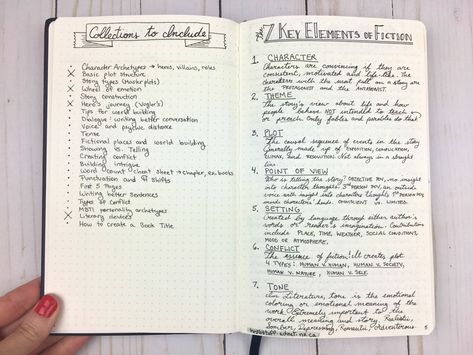 Collections to Include
Character Archetypes → heros, villains, roles
x Basic plot structure
Story types (masterplots)
x Wheel of emotion
Story construction
x Hero's journey (Vogler's)
Tips for world building
Dialogue: writing better conversation
Voice and psychic distance
Tense
Fictional places and world building
Showing vs. Telling
Creating conflict
Building intrigue
Word count cheat sheet → chapter, ex. books
Punctuation and shifts
First 5 Pages
Writing better sentences
Types of conflict
x MBTI personality archetypes
Literary devices
How to create a Book Title
The 7 Key Elements of Fiction
1. CHARACTER
Characters are convincing if they are
consistent, motivated and life-like. The
characters with the most pull on a story are
the PROTAGONIST and the ANTAGONIST.
2. THEME
The story's view about life and how
people behave. NOT intended to teach
or preach. Only fables and parables do that
3. PLOT
The causal sequence of events in the story
Generally made up of EXPOSITION, COMPLICATION,
CLIMAX, and RESOLUTION. Not always in a straight
line.
4. POINT OF VIEW
Who is telling the story? OBJECTIVE POV, no insight
into character thoughts. 3rd PERSON POV, an outside
voice with insight into characters thoughts. 1st PERSON POV
inside characters' heads. OMNISCIENT vs. LIMITED.
5. SETTING
Created by language through either author's
words or reader's imagination. Contributions
include PLACE, TIME, WEATHER, SOCIAL CONDITIONS,
MOOD or ATMOSPHERE.
6. CONFLICT
The essence of fiction: it creates plot
4 TYPES: HUMAN v. HUMAN, HUMAN v. SOCIETY,
HUMAN v. NATURE, HUMAN v. SELF
7. TONE
In Literature, tone is the emotional
coloring or emotional meaning of
the work. Extremely important to the
overall meaning and story. Realistic,
Somber, Depressing, Romantic, Adventurous.
5